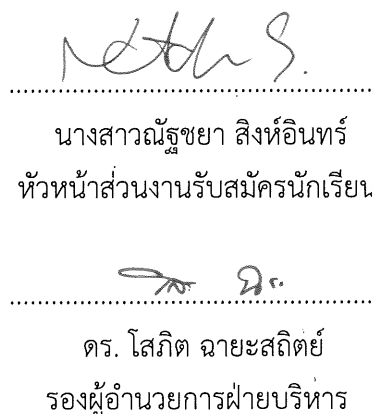 นางสาวณัฐชยา สิงห์อินทร์
หัวหน้าส่วนงานรับสมัครนักเรียน
ดร. โสภิต ฉายะสถิตย์
รองผู้อำนวยการฝ่ายบริหาร